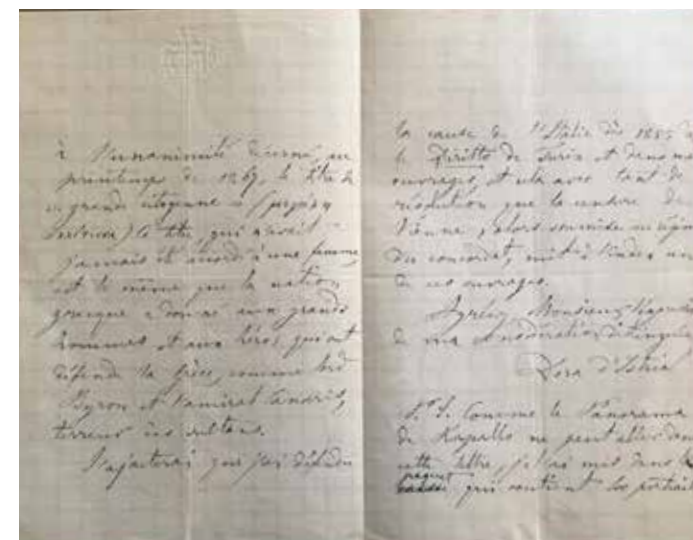 à l'unanimité décerné, au
printemps de 1867, le titre de
"grande citoyenne" (
) le titre qui n'avait
jamais été accordé à une femme,
est le même que la nation
grecque a donné aux grands
hommes et aux héros qui ont
défendu la Grèce, comme lord
Byron et l'amiral Canaris,
terreur des sultans.
J'ajouterai que j'ai défendu
la cause de l'Italie dès 1855 d
le Diritto de Turin et dans me
ouvrages, et cela avec tant de
résolution que la censure de
Vienne, alors soumise au régime
du concordat, mit à l'index un
de ces ouvrages.
Agréez, Monsieur,
de ma considération distinguée
Dora d'Istria
P. S. Comme le Panorama
de Rapallo ne peut aller dans
cette lettre, je l'ai mis dans le
paquet qui contient les portraits